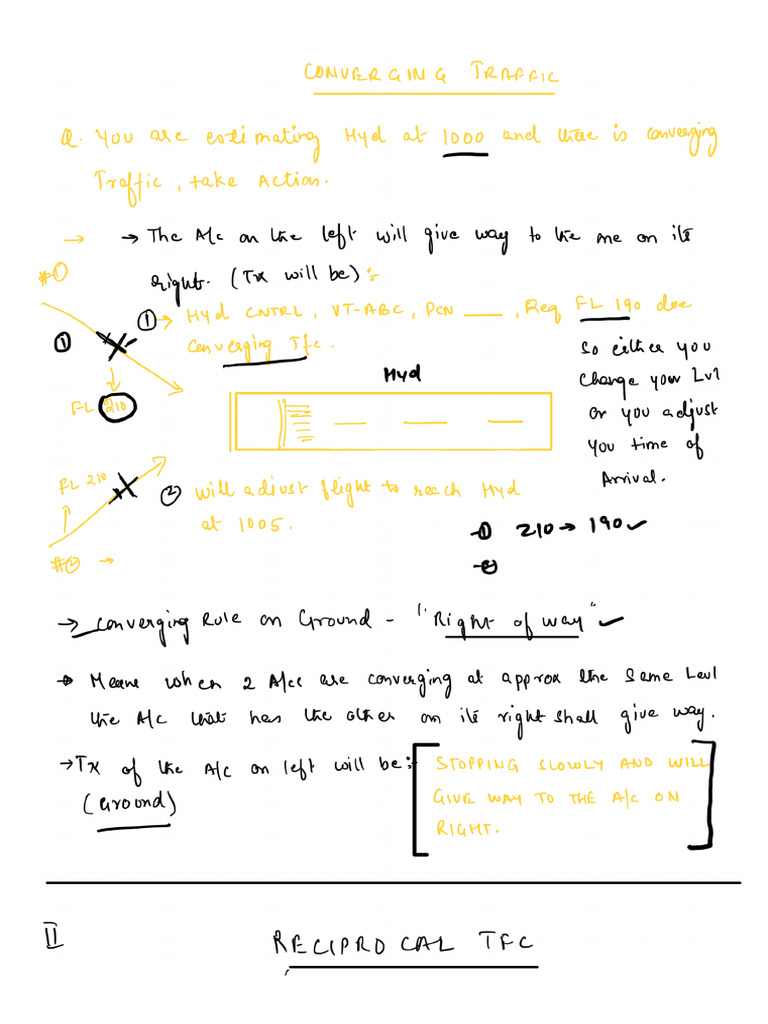 CONVERGING TRAFFIC
Q. You are estimating Hyd at 1000 and there is converging
Traffic, take Action.
→ → The A/c on the left will give way to the one on its
right. (Tx will be):-
#①
① → Hyd CNTRL, VT-ABC, PCN ___, Req FL 190 due
converging Tfc.
①
FL 210
Hyd
So either you
change your Lvl
or you adjust
you time of
Arrival.
FL 210
② will adjust flight to reach Hyd
at 1005.
#② →
-① 210 → 190 ✓
-②
→ Converging Rule on Ground - "Right of way" ✓
→ Means when 2 A/cs are converging at approx the same Level
the A/c that has the other on its right shall give way.
→ Tx of the A/c on left will be:-
(Ground)
[STOPPING SLOWLY AND WILL
GIVE WAY TO THE A/c ON
RIGHT.]
II
RECIPROCAL TFC